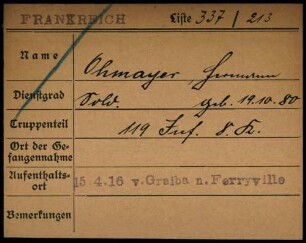 FRANKREICH Liste 337 / 213
Name Ohmayer, Hermann
Dienstgrad Sold. geb. 19.10.80
Truppenteil 119 Inf. 8. K.
Ort der Gefangennahme
Aufenthaltsort 15.4.16 v.Graiba n.Ferryville
Bemerkungen